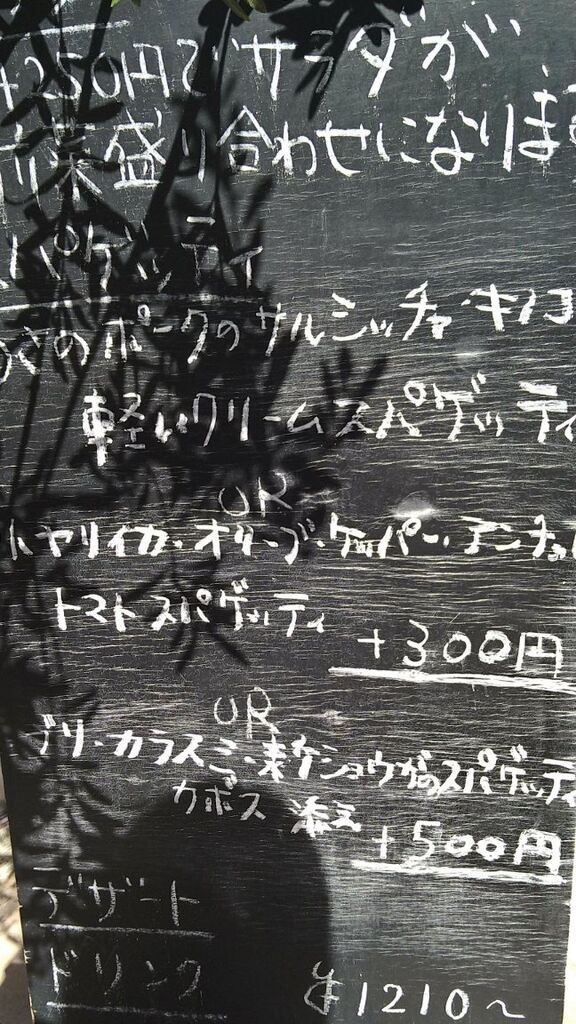 +250円でサラダが
前菜盛り合わせになります
スパゲッティ
のポークのサルシッチャ・キノコ
軽いクリームスパゲッティ
OR
ヤリイカ・オリーブ・ケッパー・アンチョビ
トマトスパゲッティ
+300円
OR
ブリ・カラスミ・ショウガのスパゲッティ
カボス 添え
+500円
デザート
ドリンク
¥1210~